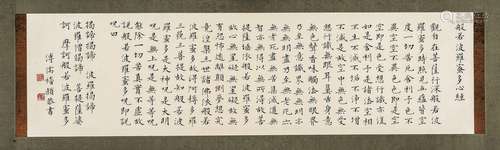 般若波羅蜜多心經
觀自在菩薩行深般若波
羅蜜多時照見五蘊皆空
度一切苦厄舍利子色不
異空空不異色色即是空
空即是色受想行識亦復
如是舍利子是諸法空相
不生不滅不垢不淨不增
不減是故空中無色無受
想行識無眼耳鼻舌身意
無色聲香味觸法無眼界
乃至無意識界無無明亦
無無明盡乃至無老死亦
無老死盡無苦集滅道無
智亦無得以無所得故菩
提薩埵依般若波羅蜜多
故心無罣礙無罣礙故無
有恐怖遠離顛倒夢想究
竟涅槃三世諸佛依般若
波羅蜜多故得阿耨多羅
三藐三菩提故知般若波
羅蜜多是大神呪是大明
呪是無上呪是無等等呪
能除一切苦真實不虛故
說般若波羅蜜多呪即說
呪曰
揭諦揭諦 波羅揭諦
波羅僧揭諦 菩提薩婆
訶 摩訶般若波羅蜜多
恭書